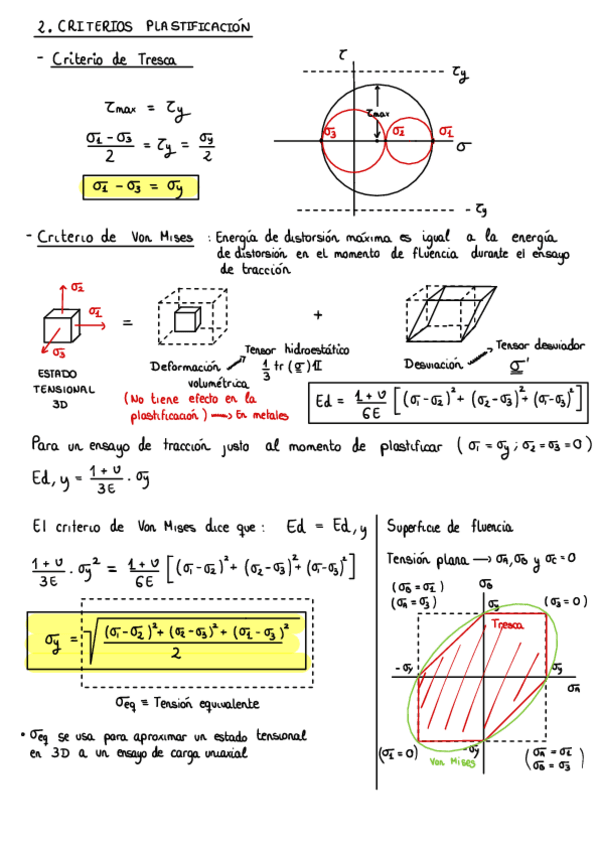 2. CRITERIOS PLASTIFICACIÓN
- Criterio de Tresca
τmax = τy
σ1 - σ3 / 2 = τy = σy / 2
σ1 - σ3 = σy
τ
τy
τmax
σ3
σ2
σ1
σ
- τy
- Criterio de Von Mises : Energía de distorsión máxima es igual a la energía
de distorsión en el momento de fluencia durante el ensayo
de tracción
σ2
σ1
σ3
=
+
ESTADO
TENSIONAL
3D
Deformación
volumétrica
Tensor hidroestático
1/3 tr (σ) 𝟙
(No tiene efecto en la
plastificación) → En metales
Desviación
Tensor desviador
σ'
Ed = 1 + υ / 6E [(σ1-σ2)² + (σ2-σ3)² + (σ1-σ3)²]
Para un ensayo de tracción justo al momento de plastificar (σ1 = σy ; σ2 = σ3 = 0)
Ed, y = 1 + υ / 3E · σy
El criterio de Von Mises dice que : Ed = Ed, y
1 + υ / 3E · σy² = 1 + υ / 6E [(σ1-σ2)² + (σ2-σ3)² + (σ1-σ3)²]
σy = √((σ1-σ2)² + (σ2-σ3)² + (σ1-σ3)² / 2)
σeq ≡ Tensión equivalente
• σeq se usa para aproximar un estado tensional
en 3D a un ensayo de carga uniaxial
Superficie de fluencia
Tensión plana → σA, σB y σC = 0
(σB = σ1)
(σA = σ3)
σB
σy
(σ3 = 0)
Tresca
- σy
σy
σA
(σ1 = 0)
- σy
Von Mises
(σA = σ1
σB = σ3)